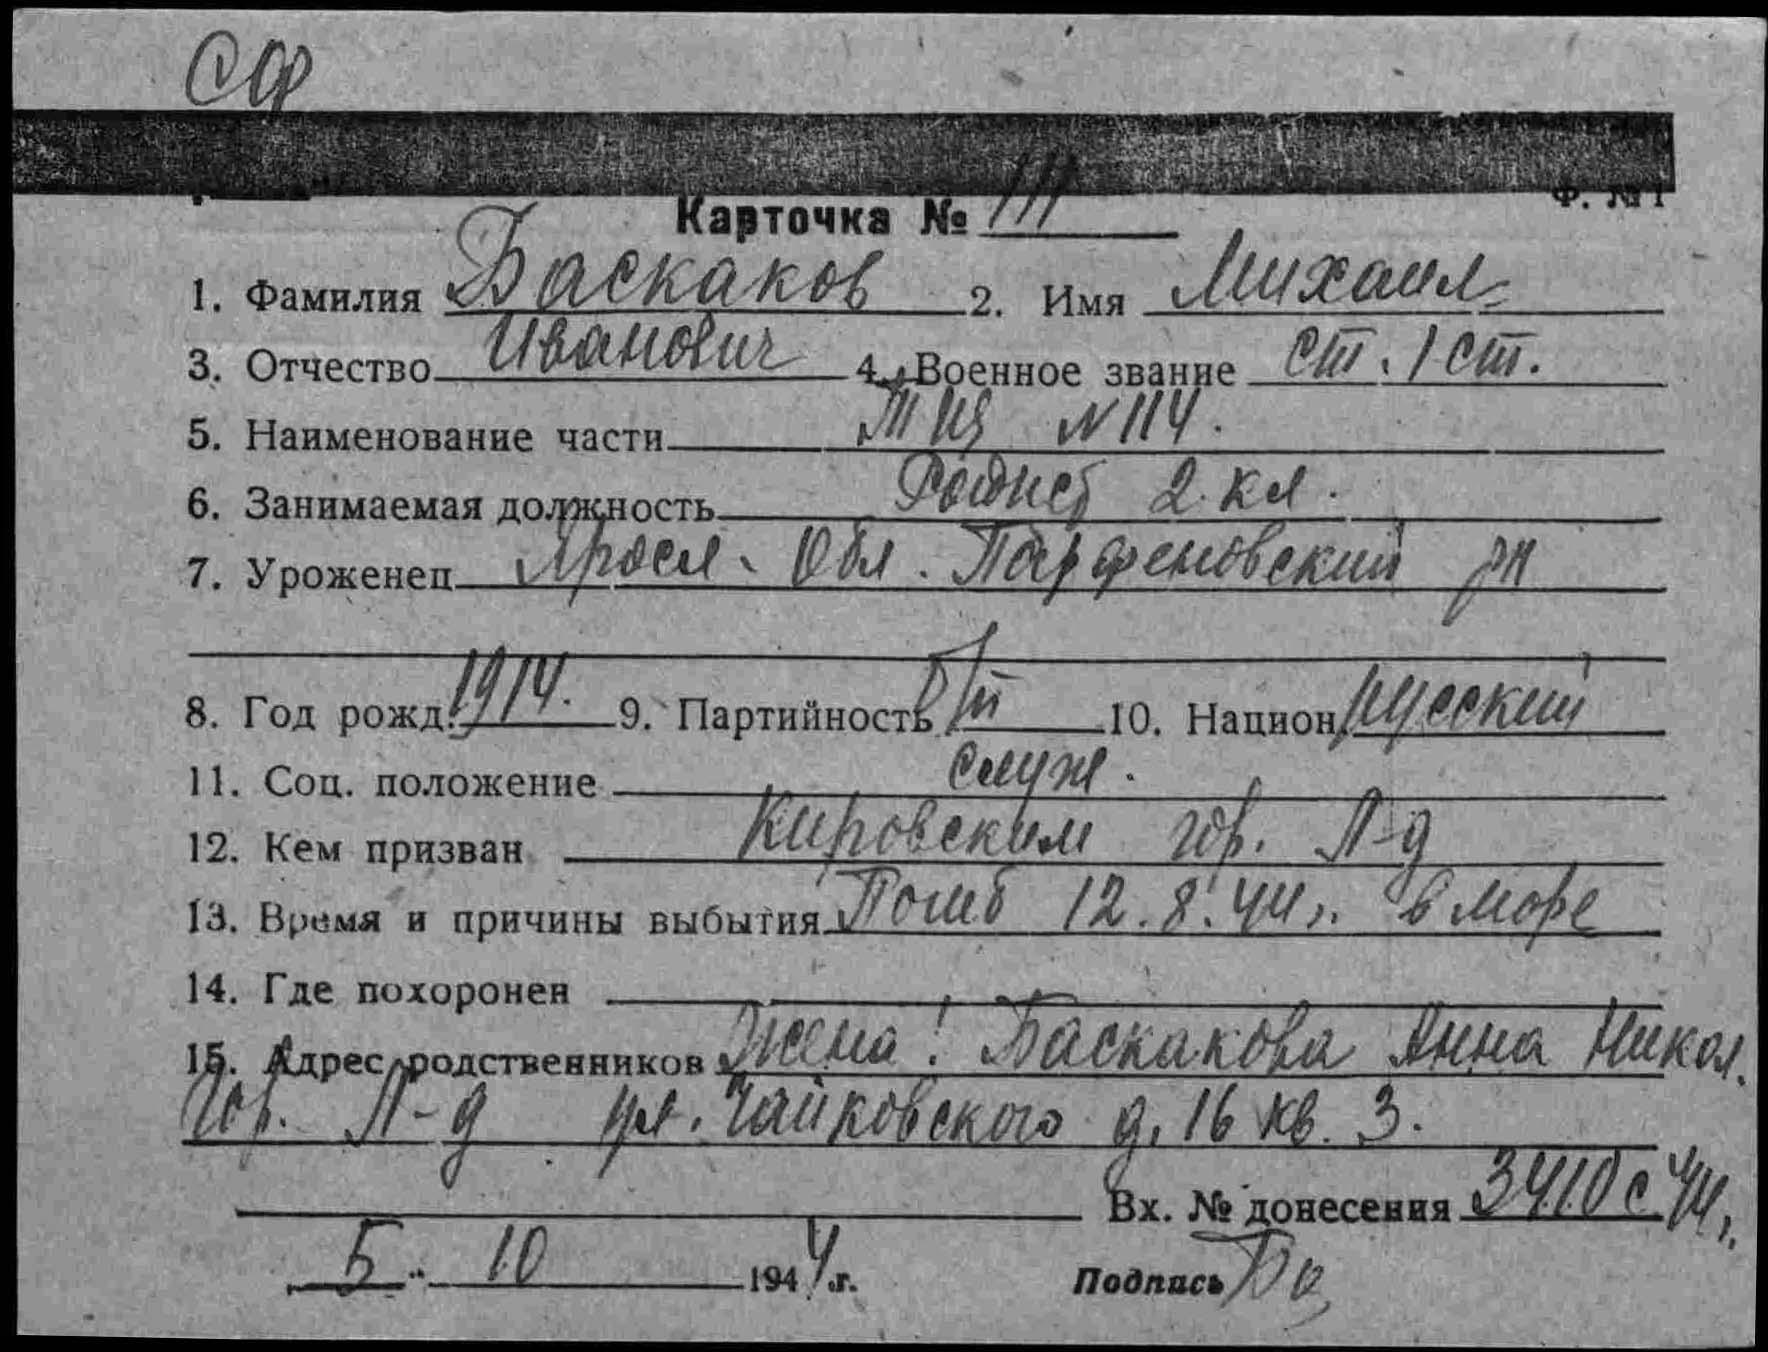 СФ
Ф. № 1
Карточка № 111
1. Фамилия Баскаков 2. Имя Михаил
3. Отчество Иванович 4. Военное звание ст. 1 ст.
5. Наименование части ТЩ N 114.
6. Занимаемая должность Радист 2 кл.
7. Уроженец Яросл. Обл. Парфеновский рн
8. Год рожд. 1914. 9. Партийность б/п 10. Национ. русский
11. Соц. положение служ.
12. Кем призван Кировским гор. Л-д
13. Время и причины выбытия Погиб 12.8.44г. в море
14. Где похоронен
15. Адрес родственников Жена: Баскакова Анна Никол.
Гор. Л-д ул. Чайковского д. 16 кв. 3.
Вх. № донесения 3410с 44г.
5 " 10 1944 г. Подпись